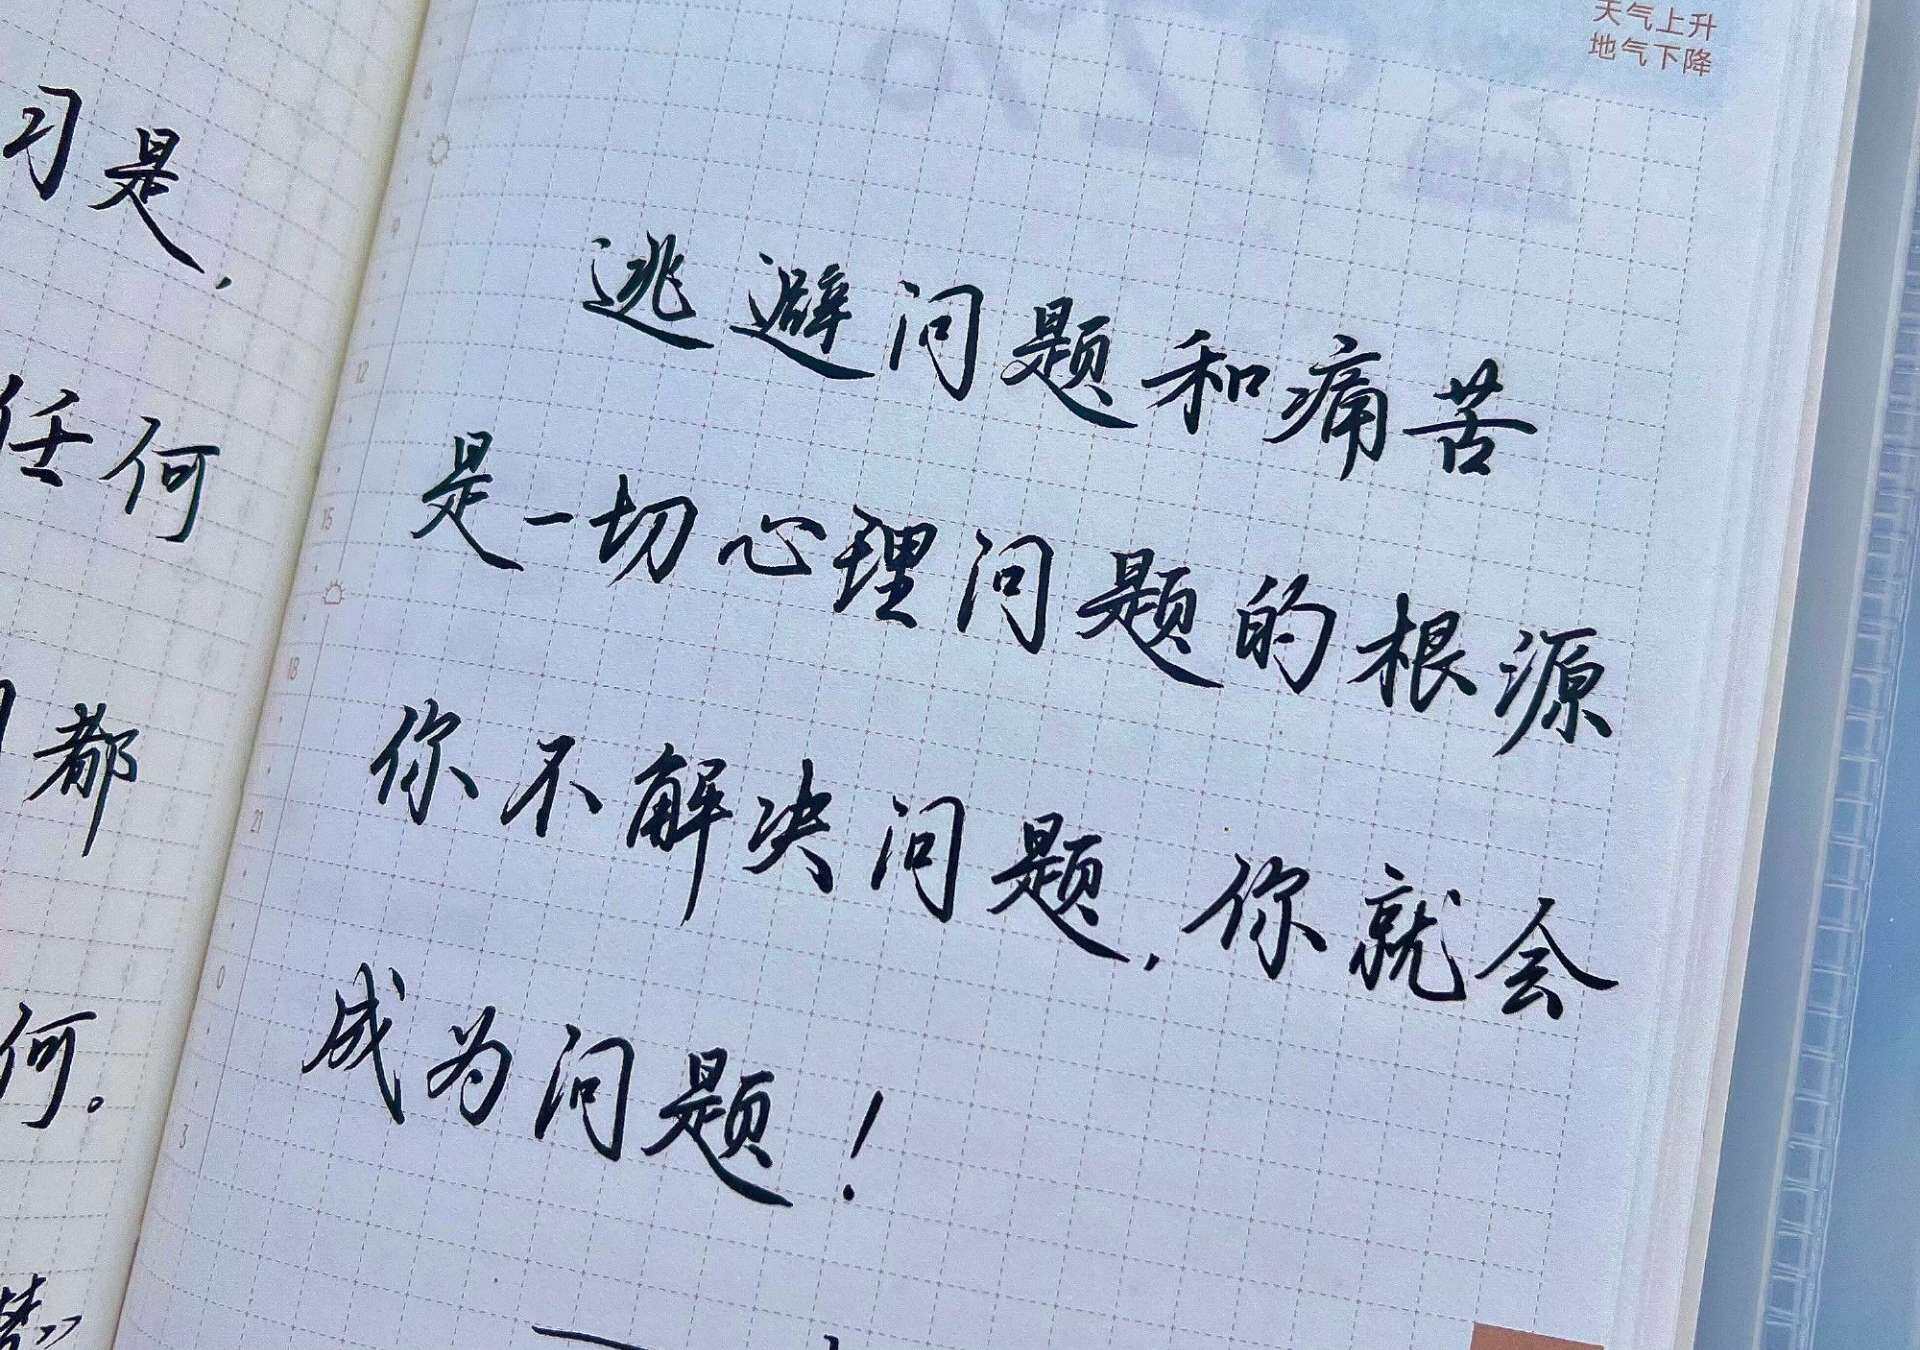 天气上升
地气下降
习是，
任何
都
何。
逃避问题和痛苦
是一切心理问题的根源
你不解决问题，你就会
成为问题！
12
15
18
21
0
3